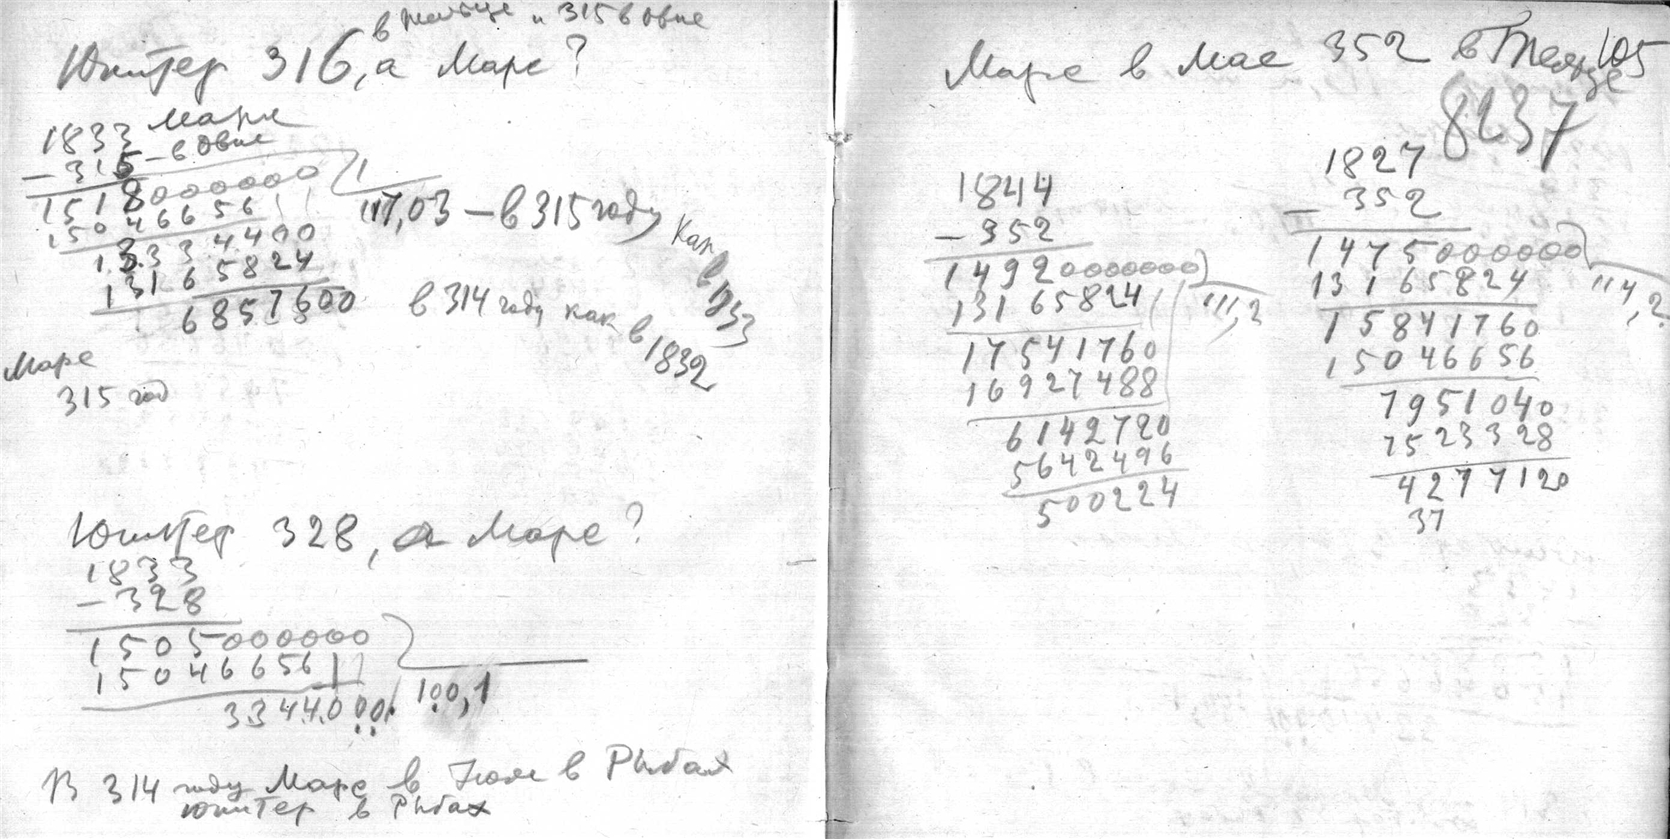 в рыбце и 315 в овне
Юпитер 316, а Марс?
1833 Марс
- 315 - в овне
1518000000
15046656 117,03 - в 315 году как в 1833
13334400
13165824
6857600 в 314 году как в 1832
Марс
315 год
Юпитер 328, а Марс?
1833
- 328
1505000000
15046656 100,1
3344000
В 314 году Марс в Июле в Рыбах
Юпитер в Рыбах
Марс в Мае 352 в Тельце
105
8237
1844
- 352
14920000000
13165824 111,2
17541760
16927488
6142720
5642496
500224
1827
- 352
1475000000
13165824 114,2
15841760
15046656
7951040
7523328
4277120
37